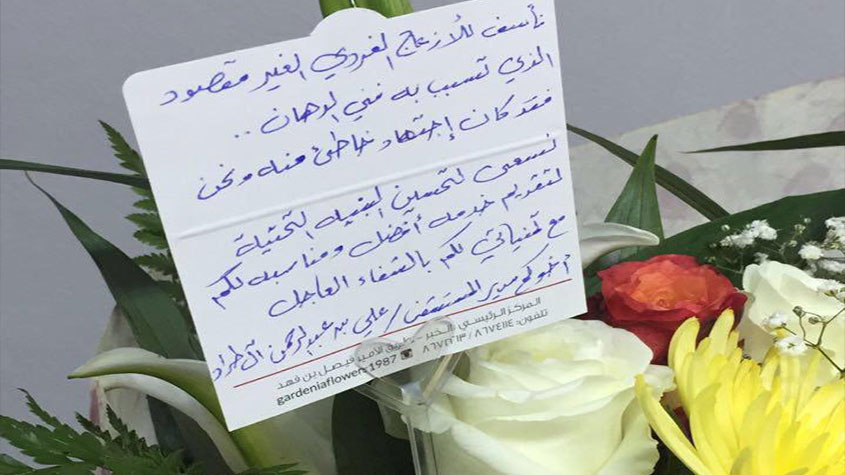 نأسف للأزعاج الفردي الغير مقصود
الذي تسبب به فني الدهان ..
فقد كان إجتهاد خاطئ منه ونحن
نسعى لتحسين البنيه التحتية
لتقديم خدمه أفضل ومناسبه لكم
مع تمنياتي لكم بالشفاء العاجل
أخوكم مدير المستشفى / علي بن عبدالرحمن آل طراد
المركز الرئيسي - الخبر - طريق الأمير فيصل بن فهد
تلفون:
gardeniaflowers1987